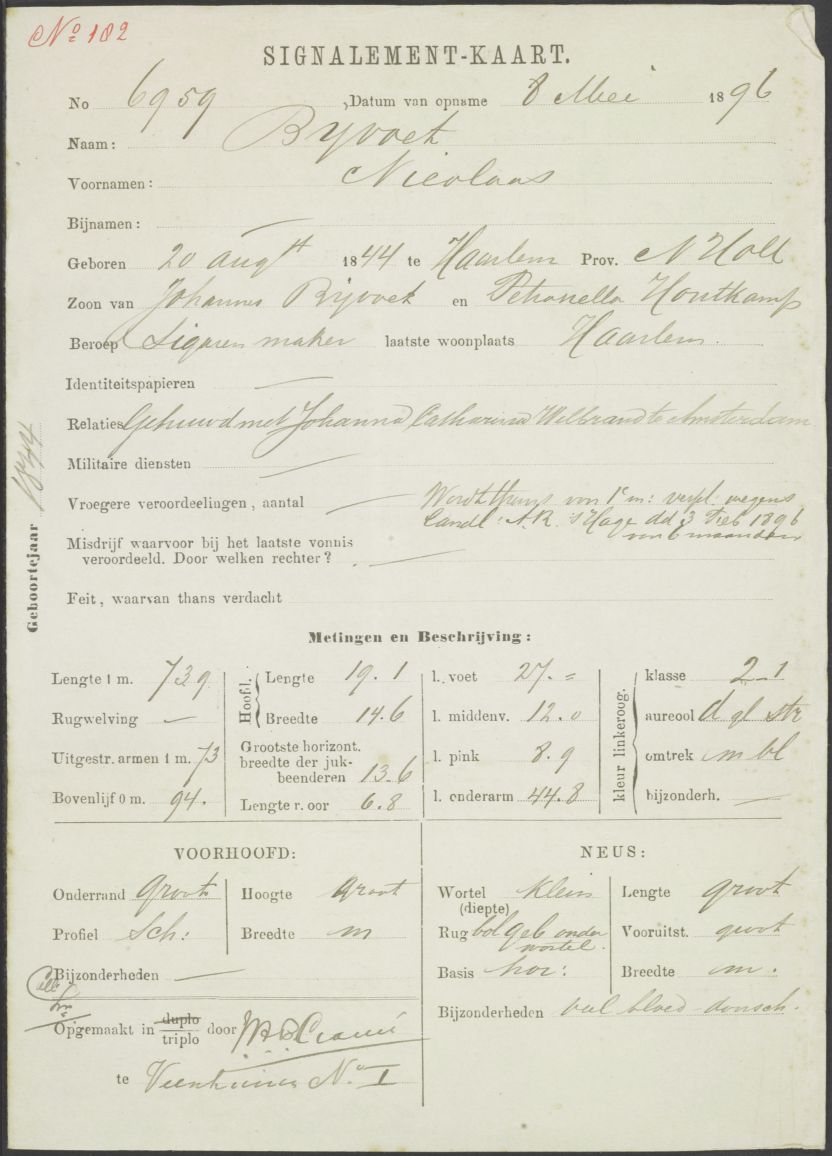 No 182
SIGNALEMENT-KAART.
No 6959, Datum van opname 8 Mei 1896
Naam: Byvoet
Voornamen: Nicolaas
Bijnamen: —
Geboren 20 augst 1844 te Haarlem Prov. N Holl
Zoon van Johannes Bijvoet en Petronella Houtkamp
Beroep Sigaren maker laatste woonplaats Haarlem.
Identiteitspapieren —
Relaties Gehuwd met Johanna Catharina Welbrand te Amsterdam
Militaire diensten —
Vroegere veroordeelingen, aantal — Wordt thans voor 1e m: verpl: wegens
Landl: A.R. 's Hage dd 3 Feb 1896
van 6 maanden
Misdrijf waarvoor bij het laatste vonnis
veroordeeld. Door welken rechter? —
Feit, waarvan thans verdacht
Geboortejaar 1844
Metingen en Beschrijving:
Lengte 1 m. 739
Rugwelving —
Uitgestr. armen 1 m. 73
Bovenlijf 0 m. 94.
Hoofd.
Lengte 19.1
Breedte 14.6
Grootste horizont.
breedte der juk-
beenderen 13.6
Lengte r. oor 6.8
l. voet 27.=
l. middenv. 12.0
l. pink 8.9
l. onderarm 44.8
kleur linkeroog.
klasse 2-1
aureool d gl str
omtrek m bl
bijzonderh. —
VOORHOOFD:
Onderrand groot
Profiel Sch:
Hoogte groot
Breedte m
Bijzonderheden —
Opgemaakt in duplo triplo door
te Veenhuizen No I
NEUS:
Wortel klein
(diepte)
Rug bol geb onder
wortel.
Basis hor:
Lengte groot
Vooruitst. groot
Breedte m.
Bijzonderheden veel bloed-doorsch.